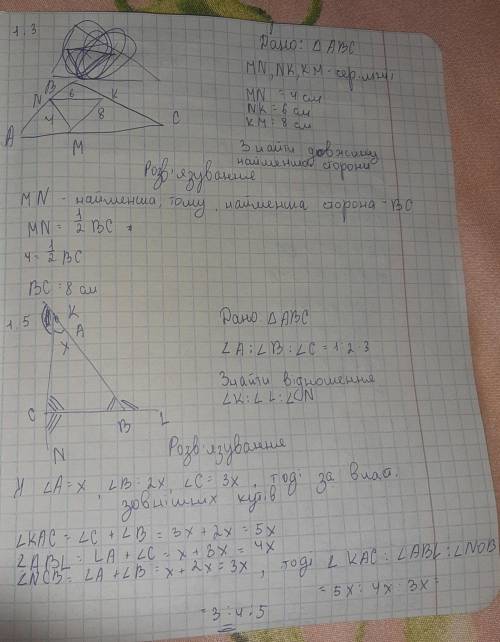 1.3
Дано: △ABC
MN, NK, KM - сер. лінії
MN = 4 см
NK = 6 см
KM = 8 см
Знайти довжину
найменшої сторони
B
N 6 K
4 8
A M C
Розв'язування
MN - найменша, тому найменша сторона - BC
MN = 1/2 BC
4 = 1/2 BC
BC = 8 см
1.5
K
A
X
C B L
N
Дано: △ABC
∠A : ∠B : ∠C = 1:2:3
Знайти відношення
∠K : ∠L : ∠N
Розв'язування
∠A = x, ∠B = 2x, ∠C = 3x, тоді за власт.
зовнішніх кутів
∠KAC = ∠C + ∠B = 3x + 2x = 5x
∠ABL = ∠A + ∠C = x + 3x = 4x
∠NCB = ∠A + ∠B = x + 2x = 3x, тоді ∠KAC : ∠ABL : ∠NCB
= 5x : 4x : 3x =
= 3:4:5